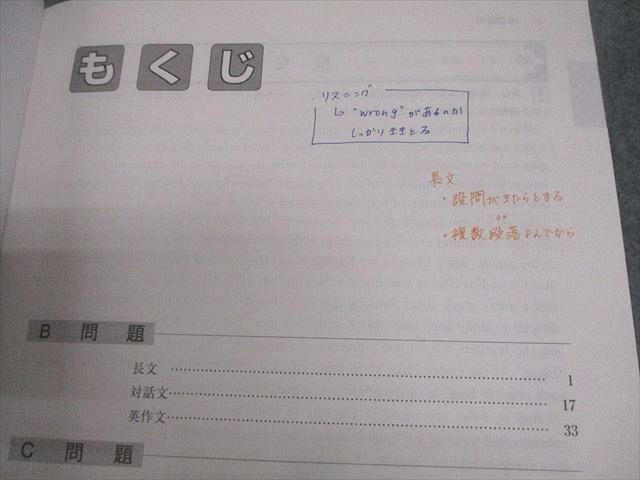 もくじ
・リスニング
↳ "wrong"があるのか
しっかりききとる
長文
・設問がきたらとまる
or
・複数段落よんでから
B 問 題
長文 1
対話文 17
英作文 33
C 問 題